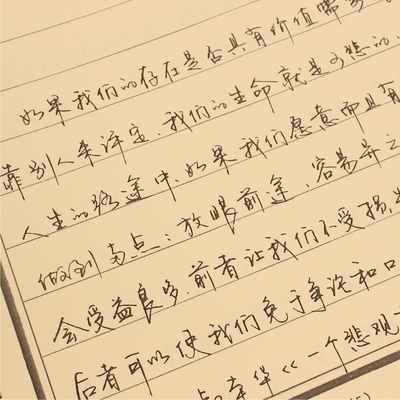 如果我们的存在是否具有价值需要
靠别人来评定,我们的生命就是可悲的,
人生的路途中,如果我们愿意而且有
做到两点:放眼前途,容易弃之
会受益良多,前者让我们不受损,
后者可以使我们免于争论和口
华《一个悲观